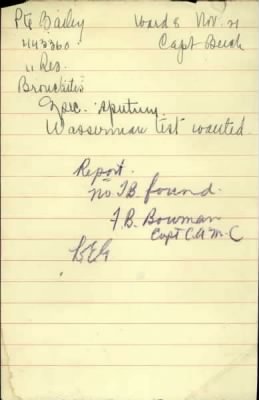 Pte Bailey Ward 8 Nov. 21
443360 Capt
11 Res.
Bronchitis
Spec. sputum.
Wasserman test wanted
Report.
No TB found.
F. B. Bowman
Capt C.A.M.C